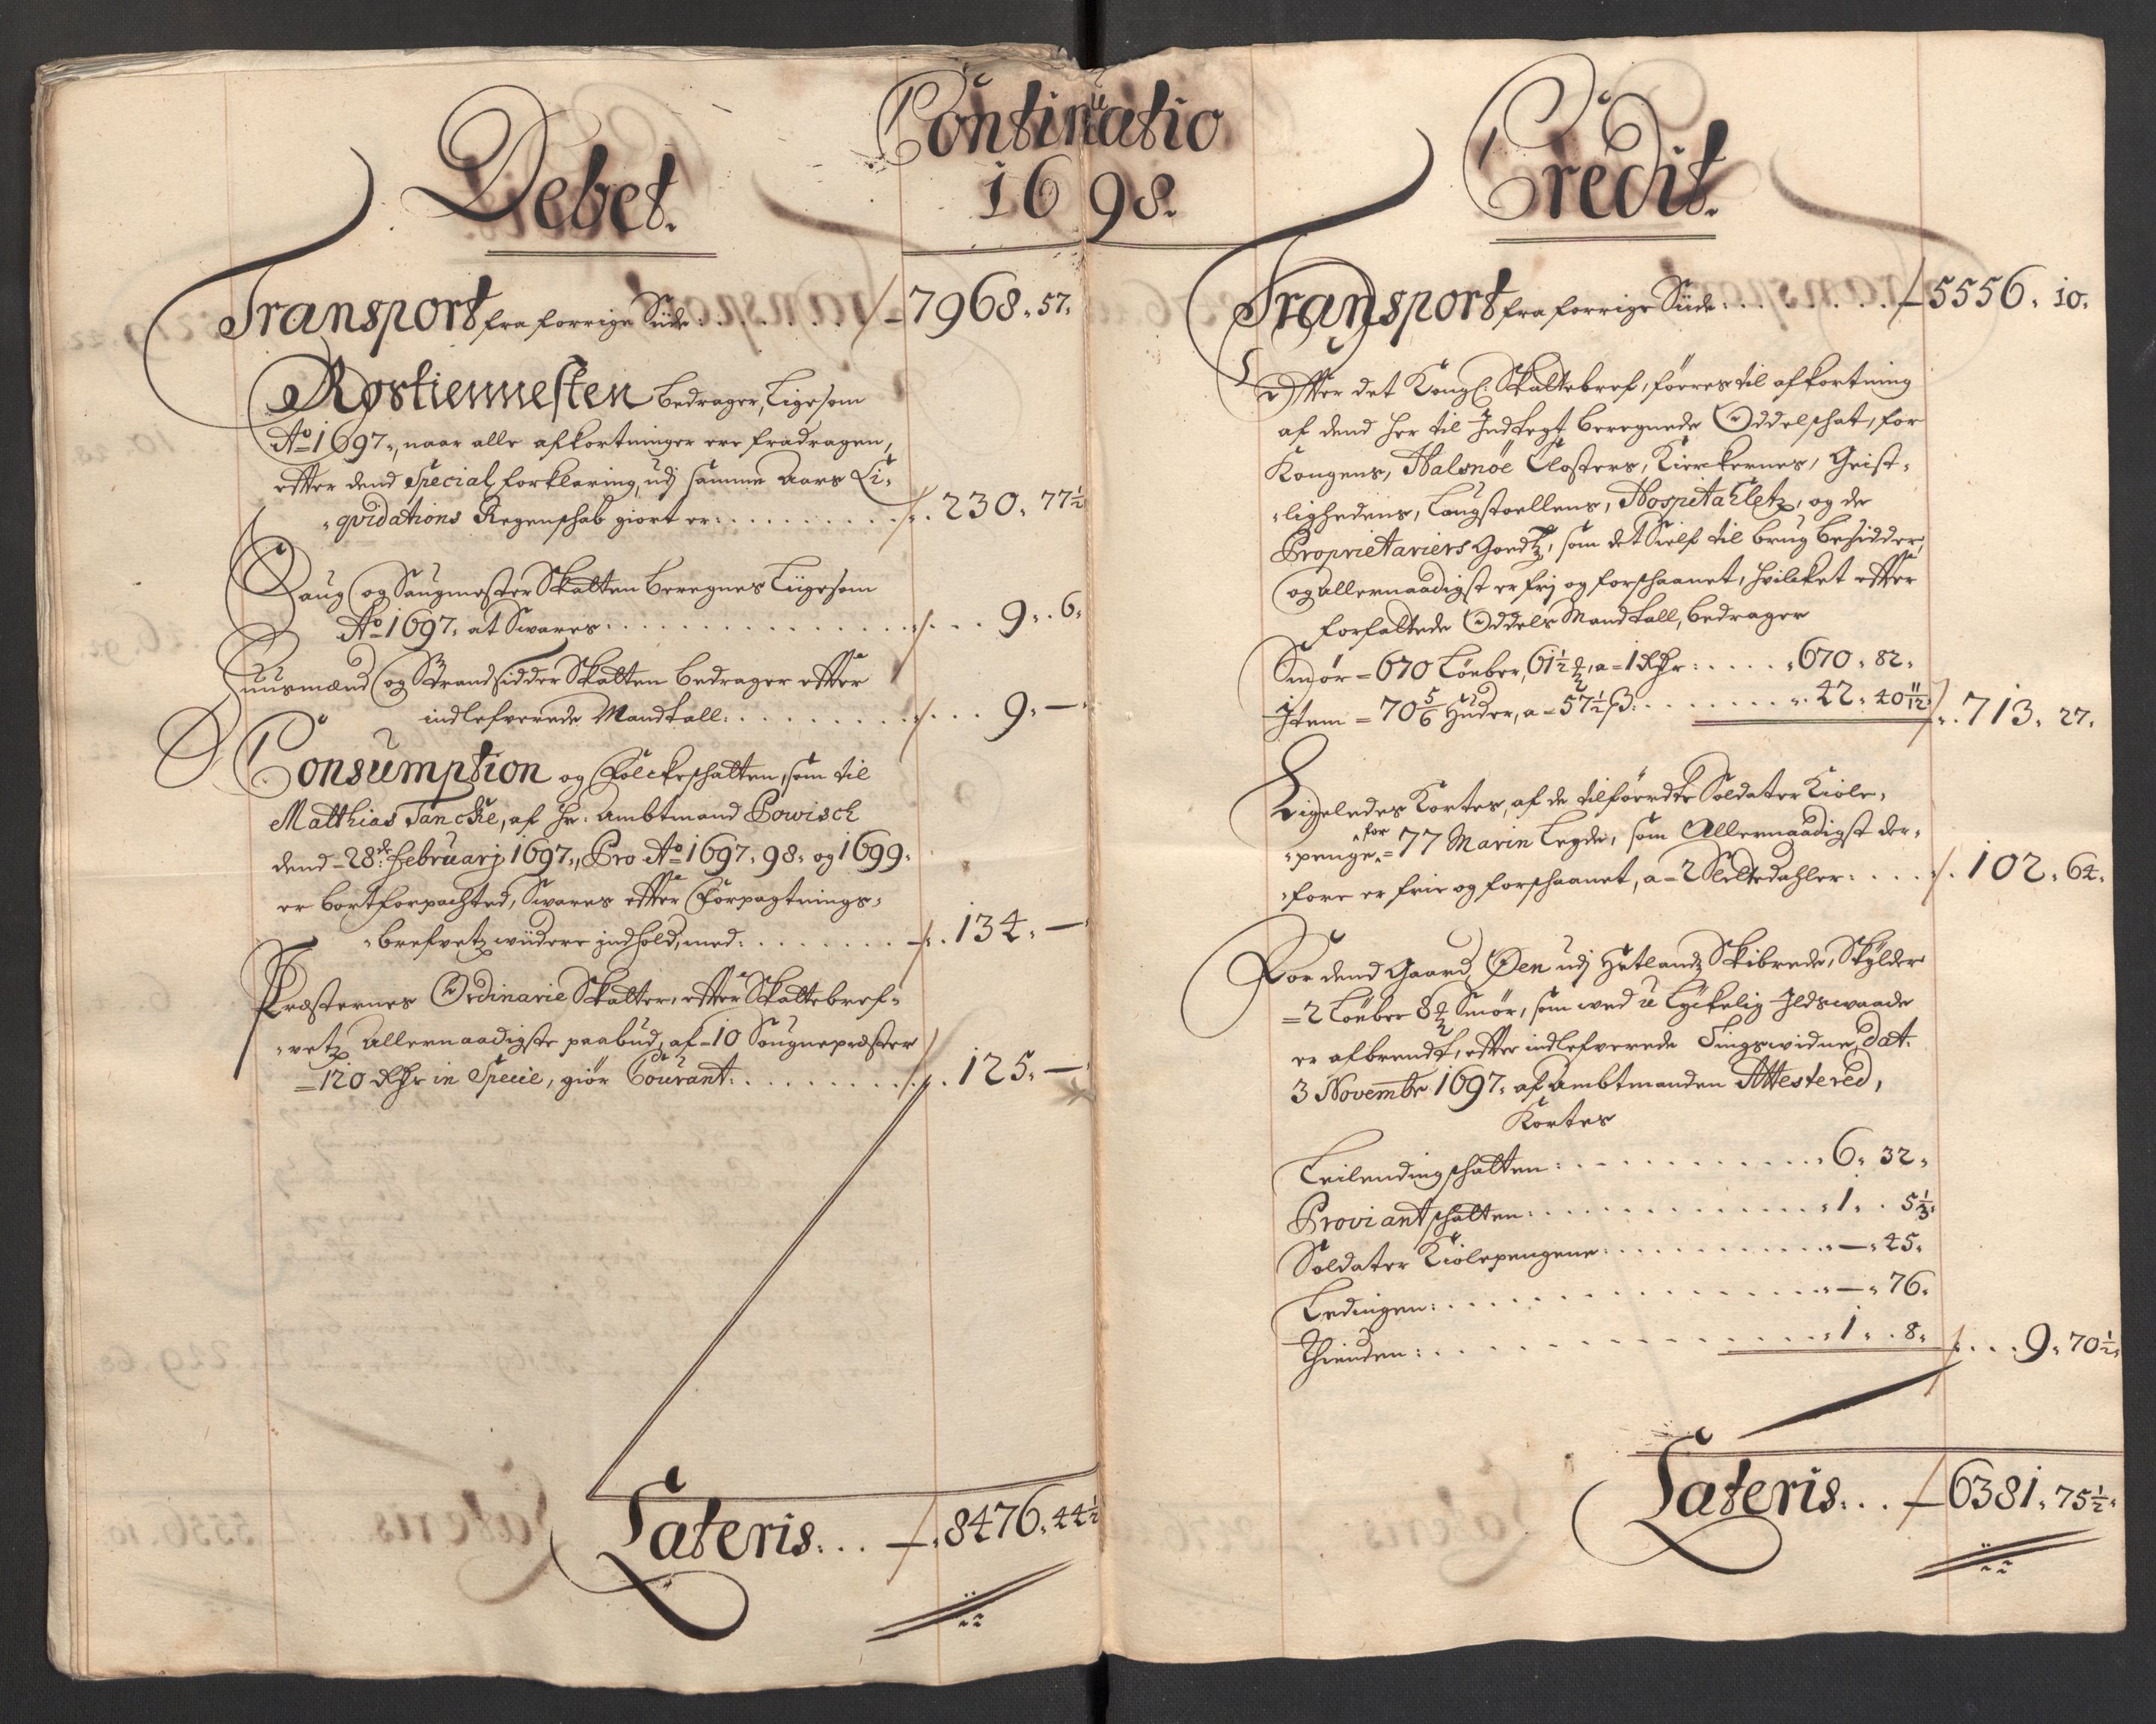 Continuatio
1698.
Debet.
Transport fra forrige Side: . . . . . . . 7968. 57.
Rostiennesten bedrager, Ligesom
Ao 1697, naar alle afkortninger ere fradragen,
effter dend Special forklaring, udj samme Aars Li-
qvidations Regenschab giort er: . . . . . . . . . 230. 77½
Saug og Saugmester Skatten beregnes Liigesom
Ao 1697. at Svares . . . . . . . . . . . . . 9. . 6.
Huusmænd og Strandsidder Skatten bedrager effter
indlefverede Mandtall: . . . . . . . . . . 9. —
Consumption og Folckeschatten, som til
Matthias Tancke, af Hr: Ambtmand Powisch
dend 28de: februarj 1697, Pro Ao 1697. 98. og 1699.
er bortforpachted, Svares effter Forpagtnings-
brefvetz widere indhold, med: . . . . . . . . 134. —
Præsternes Ordinarie Skatter, effter Skattebref-
vetz Allernaadigste paabud, af 10 Sougnepræster
120 Rdr in Specie, giør Courant: . . . . . . . . . 125. —
Lateris. . . . 8476. 44½
Credit.
Transport fra forrige Side: . . . . . . . . 5556. 10.
Effter det Kongl: Skattebref, føres til afkortning
af dend her til Indtegt beregnede Oddelschat, for
Kongens, Halsnöe Closters, Kierckernes, Geist-
lighedens, Laugstoellens, Hospitahletz, og de
Proprietariers Goedtz, som det Sielf til brug besidder,
og allernaadigst er frj og forschaanet, hvilcket effter
forfattede Oddels Mandtall, bedrager
Smör = 670 Löeber, 61½ ℔, a = 1 Rdr: . . . . 670. 82.
Item = 70 5/6 Huder, a = 57½ ß: . . . . . . . . 42. 40 11/12 . 713. 27.
Ligeledes Kortes, af de tilförde Soldater Kiole-
penge, for = 77 Marin Legde, som Allernaadigst der-
fore er frie og forschaanet, a = 2 Slettedahler: . . . . 102. 64.
For dend Gaard Øen udj Hetlandz Skibrede, Skylder
= 2 Löeber 8 ℔ Smör, som ved u Lyckelig Ildsvaade
er afbrendt, effter indlefverede Tingsvidne, dat.
3 Novembr 1697. af Ambtmanden Attestered,
Kortes
Leilendingschatten: . . . . . . . . . . . . 6. 32.
Proviantschatten: . . . . . . . . . . . . . 1. . 5⅓.
Soldater Kiolepengene: . . . . . . . . . . . —. 45.
Ledingen: . . . . . . . . . . . . . . . . —. 76.
Thienden: . . . . . . . . . . . . . . . . 1. . 8. . . . 9. 70½.
Lateris. . . . 6381. 75½.